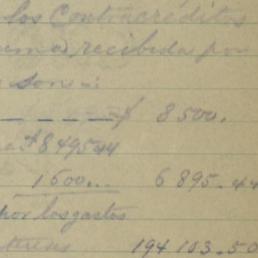 los Contracréditos
recibida por
son:
$ 8500.
$ 8495.44
1600... 6895.44
por los gastos
194103.50